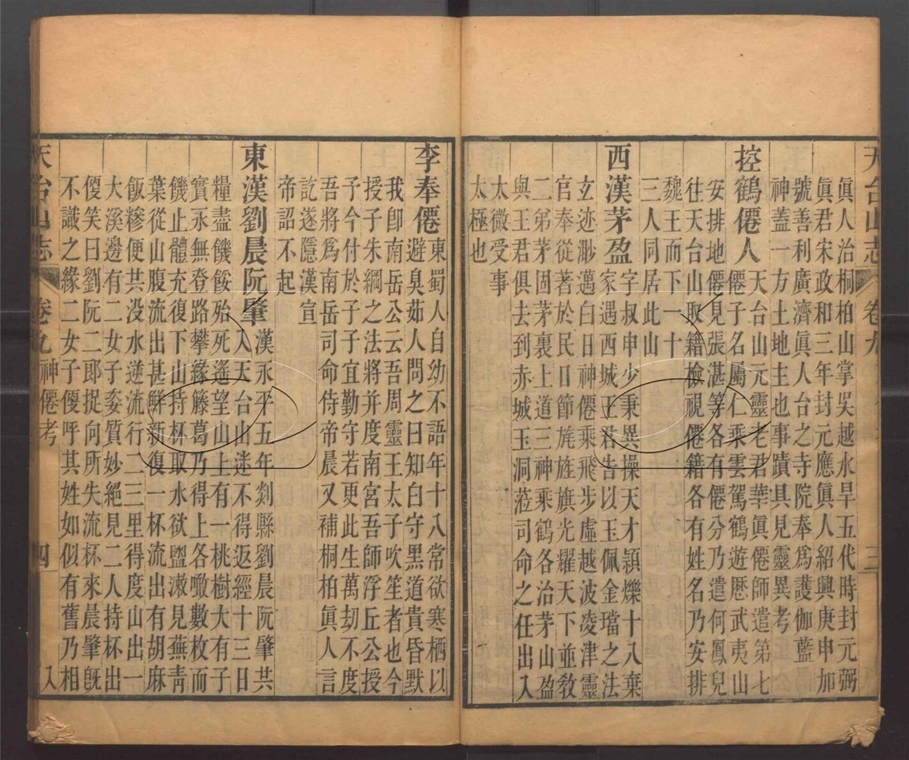 天台山志 卷九 三
眞人治桐柏山掌吳越水旱五代時封元弼
眞君宋政和三年封元應眞人紹興庚申加
號善利廣濟眞人台之寺院奉爲護伽藍
神蓋一方土地主也事蹟具見靈異考
控鶴僊人天台山元靈老君華眞僊師遣第七
僊子名屬仁乘雲駕鶴遊歷武夷山
安排地僊見張湛等各有僊分乃遣何鳳兒
往天台山取籍檢視僊籍各有姓名乃安排
魏王而下一十
三人同居此山
西漢茅盈字叔申少秉異操天才頴爍十八棄
家遇西城王君告以玉佩金璫之法
玄迹邈白日神僊乘飛步虛越波凌津靈
官奉從著於民日節旄旌旗光耀天下並敎
二弟茅固茅裏上道三神乘鶴各治茅山盈
與王君俱去到赤城玉洞蒞司命之任出入
太微受事
太極也
李奉僊東蜀人自幼不語年十八常欲寒栖以
避臭茹人問之曰知白守黑道貴昏默
我卽南岳公云吾周靈王太子吹笙者也今
授子朱綱之法將并度南宮吾師浮丘公授
子今付於子子宜勤守若更此生萬劫不度
吾將爲南岳司命侍帝晨又補桐柏眞人言
訖遂隱漢宣
帝詔不起
東漢劉晨阮肇漢永平五年剡縣劉晨阮肇共
入天台山迷不得返經十三日
糧盡饑餒殆死遥望山上有一桃樹大有子
實永無登路攀緣籐葛乃得上各噉數枚而
饑止體充復下山持杯取水欲盥漱見蕪靑
葉從山腹流出甚鮮新復一杯流出有胡麻
飯糝便共没水逆流行二三里得度山出一
大溪邊有二女子姿質妙絕見二人持杯出
便笑曰劉阮二郎捉向所失流杯來晨肇旣
不識之緣二女子便呼其姓如似有舊乃相
天台山志 卷九 神僊考 四 入